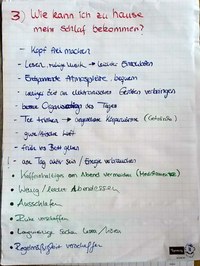 3) Wie kann ich zu hause
mehr Schlaf bekommen?
- Kopf frei machen
- Lesen, ruhige Musik → leichter Einschlafen
- Entspannte Atmosphäre, bequem
- weniger Zeit an elektronischen Geräten verbringen
- des Tages
- Tee trinken → angenehme Körperwärme
- Luft
- früh ins Bett gehen
- am Tag aktiv sein / Energie verbrauchen
• Koffeinhaltiges am Abend vermeiden
• Wenig / leichtes Abendessen
• Ausschlafen
• Ruhe verschaffen
• Langweilige Sachen lesen / hören
• Regelmäßigkeit verschaffen